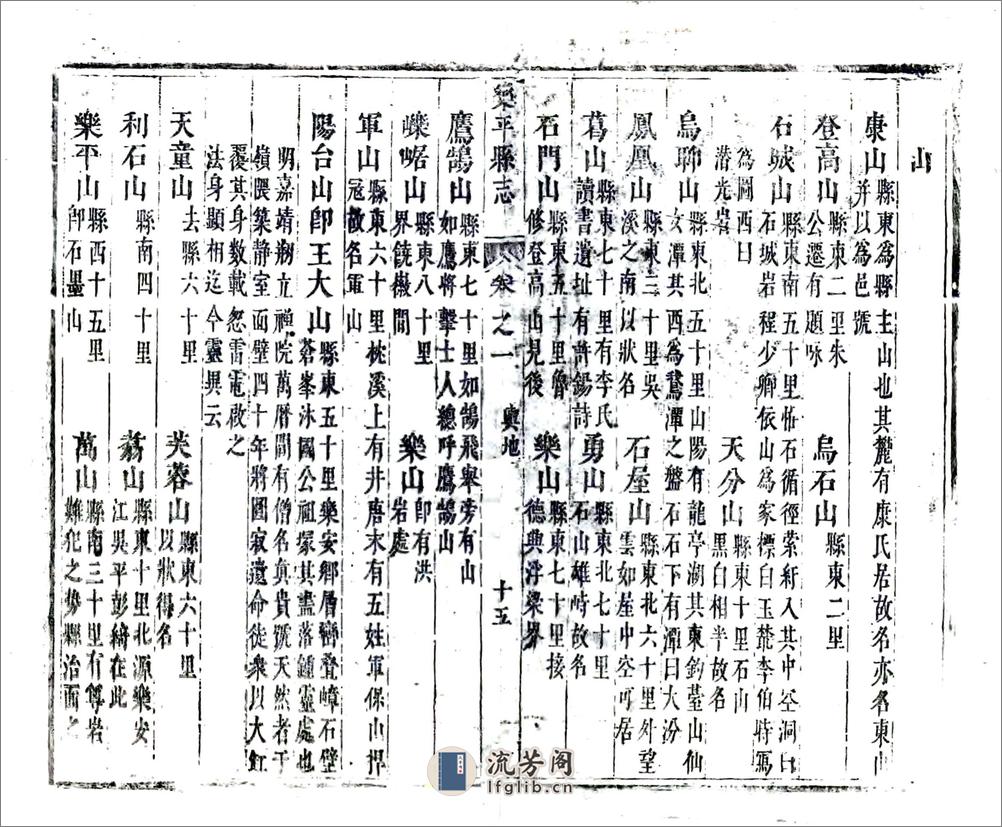 山
康山縣東為縣主山也其麓有康氏居故名亦名東山
并以為邑號
登高山縣東二里朱
公遷有題咏
烏石山縣東二里
石城山縣東南五十里恠石循徑縈紆入其中空洞曰
石城岩程少卿依山為家標曰玉蕋李伯時寫
為圖西曰
潜光岩
天分山縣東十里石山
黑白相半故名
烏聊山縣東北五十里山陽有龍亭湖其東釣臺山仙
女潭其西為鵞潭之盤石石下有潭曰大汾
鳳凰山縣東三十里吳
溪之南以狀名
石屋山縣東北六十里外望
雲如屋中空可居
葛山縣東七十里有李氏
讀書遺址有詩
勇山縣東北七十里
石山雄峙故名
石門山縣東五十里魯
修登高山見後
樂山縣東七十里接
德興浮梁界
樂平縣志
卷之一
輿地
十五
鷹鵠山縣東七十里如鵠飛舉旁有山
如鷹將擊士人總呼鷹鵠山
嶫㟎山縣東八十里
界饒徽間
樂山即有洪
岩處
軍山縣東六十里枕溪上有井唐末有五姓軍保山捍
冦故名軍山
陽台山即王大山縣東五十里樂安鄉層巒疊嶂石壁
蒼峯沐國公祖塚其畵落鍾靈處也
明嘉靖剏立禪院萬曆間有僧名真貴號天然者于
嶺隈築静室面壁四十年將圓寂遺命徒衆以大缸
覆其身數載忽雷電啟之
法身顯相迄今靈異云
天童山去縣六十里
芙蓉山縣東六十里
以狀得名
利石山縣南四十里
荔山縣東十里北源樂安
江吳平彭綺在此
樂平山縣西十五里
即石墨山
萬山縣南三十里有尊岩
難犯之勢縣治面之
流芳阁
lfglib.cn